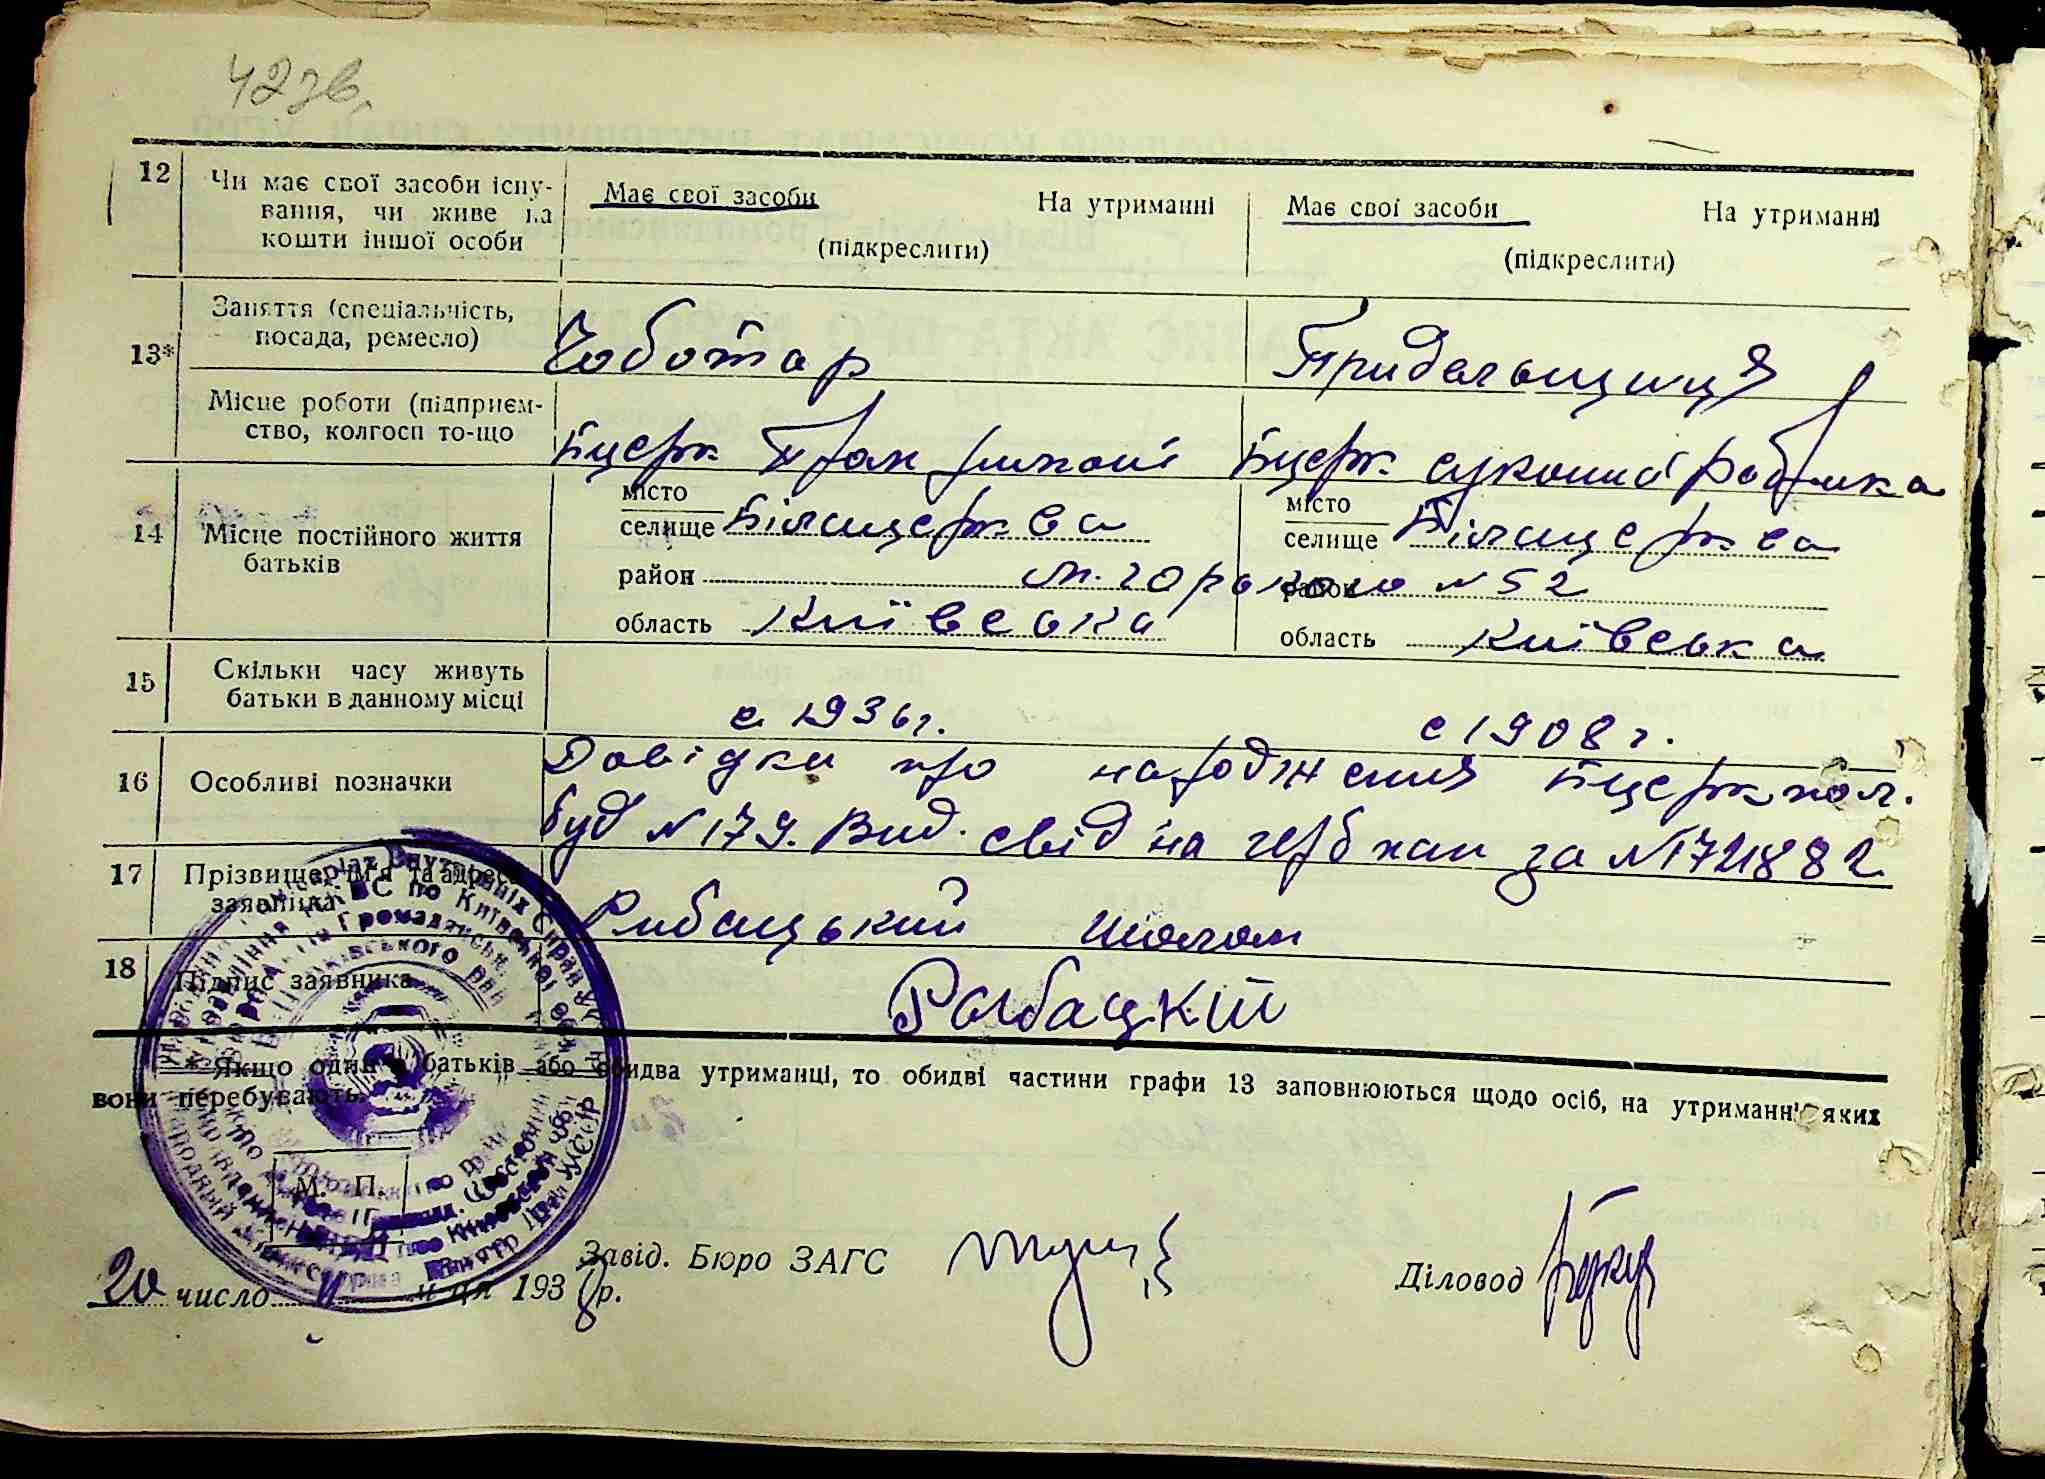 42 зв.
12 Чи має свої засоби існу-
вання, чи живе на
кошти іншої особи
Має свої засоби На утриманні
(підкреслити)
Має свої засоби На утриманні
(підкреслити)
13* Заняття (спеціальність,
посада, ремесло)
Чоботар
Придальщиця
Місце роботи (підприєм-
ство, колгосп то-що
Бцерк
Бцерк
14 Місце постійного життя
батьків
місто
селище Білацерква
район
область Київська
місто
селище Білацерква
район
область Київська
горького № 52
15 Скільки часу живуть
батьки в данному місці
с 1936 г.
с 1908 г.
16 Особливі позначки
Довідки про народження Бцерк пол.
буд № 179. Вид. свід на герб пап за № 172882
17 Прізвище, ім'я та адреса
заявника
Рибацький Шолом
18 Підпис заявника
Рыбацкий
* Якщо один з батьків або обидва утриманці, то обидві частини графи 13 заповнюються щодо осіб, на утриманні яких
вони перебувають.
М. П.
20 число м-ця 1938 р.
Завід. Бюро ЗАГС
Діловод